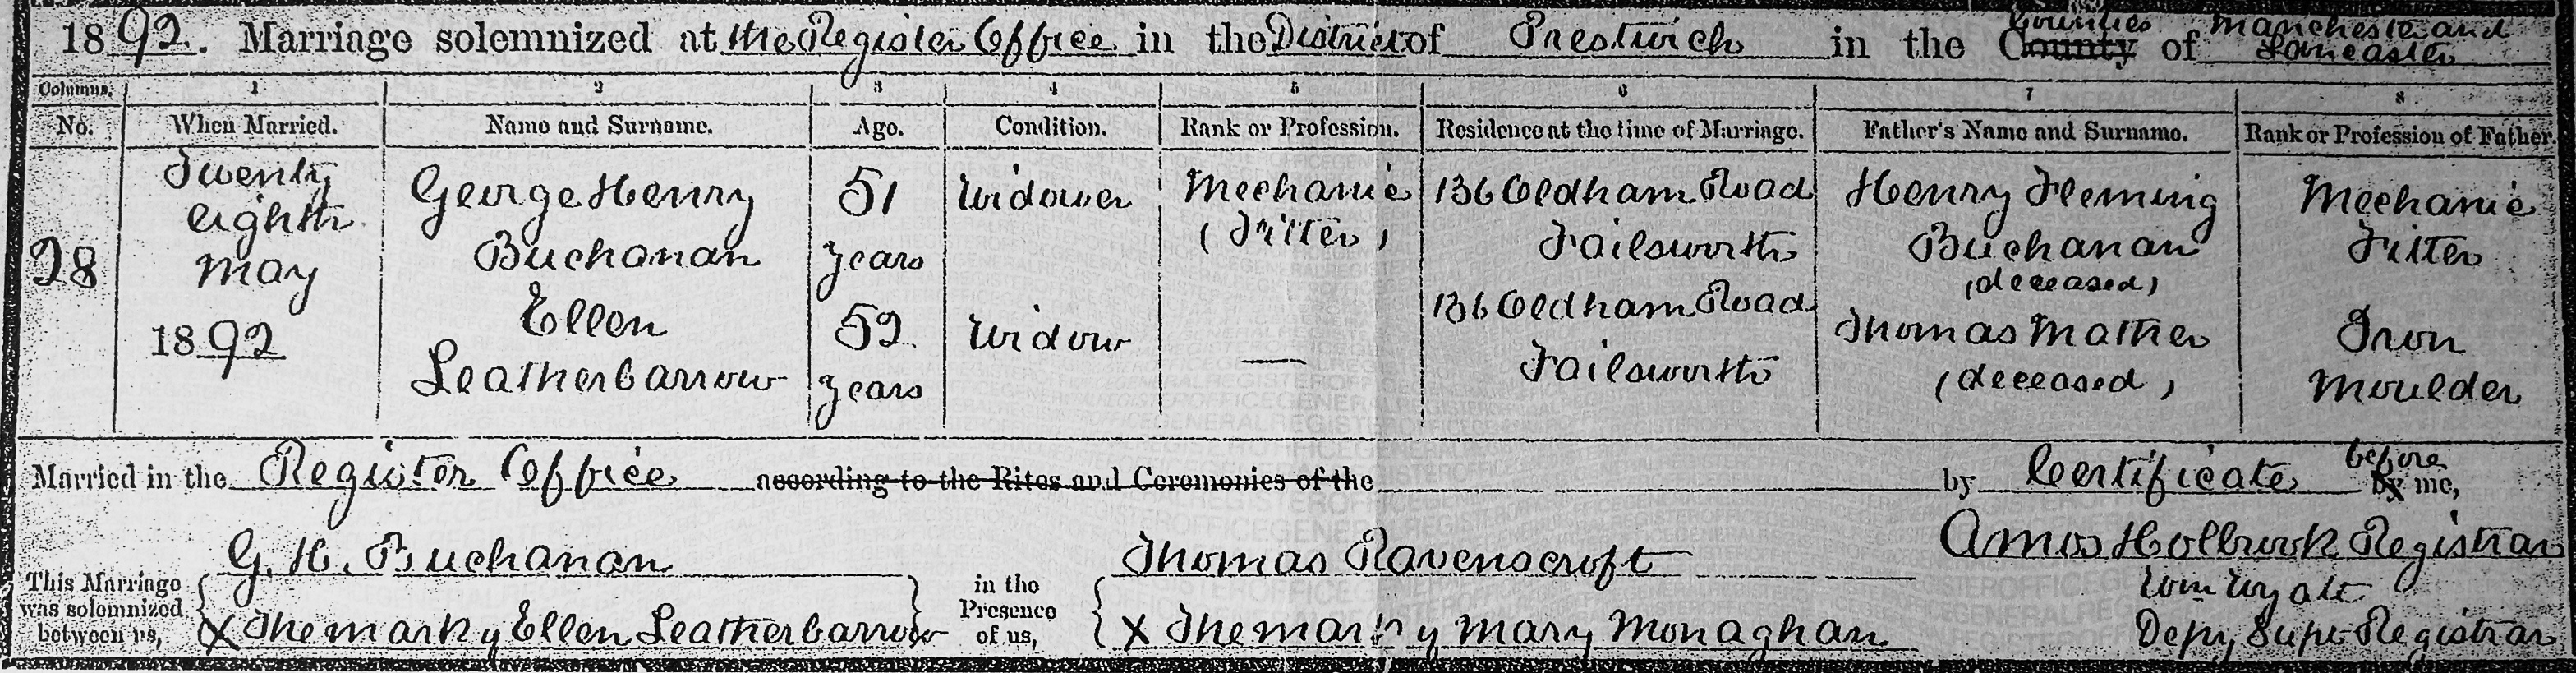 1892. Marriage solemnized at the Register Office in the District of Prestwich in the Counties County of Manchester and Lancaster
Columns. 1 2 3 4 5 6 7 8
No. When Married. Name and Surname. Age. Condition. Rank or Profession. Residence at the time of Marriage. Father's Name and Surname. Rank or Profession of Father.
28
Twenty
eighth
May
1892
George Henry
Buchanan
51
years
Widower
Mechanic
(Fitter)
136 Oldham Road
Failsworth
Henry Fleming
Buchanan
(deceased)
Mechanic
Fitter
Ellen
Leatherbarrow
52
years
Widow
—
136 Oldham Road
Failsworth
Thomas Mather
(deceased)
Iron
Moulder
Married in the Register Office according to the Rites and Ceremonies of the by Certificate before by me,
This Marriage
was solemnized
between us,
G. H. Buchanan
X The mark of Ellen Leatherbarrow
in the
Presence
of us,
Thomas Ravenscroft
X The mark of Mary Monaghan
Amos Holbrook Registrar
Wm Wyatt
Depy Supt Registrar